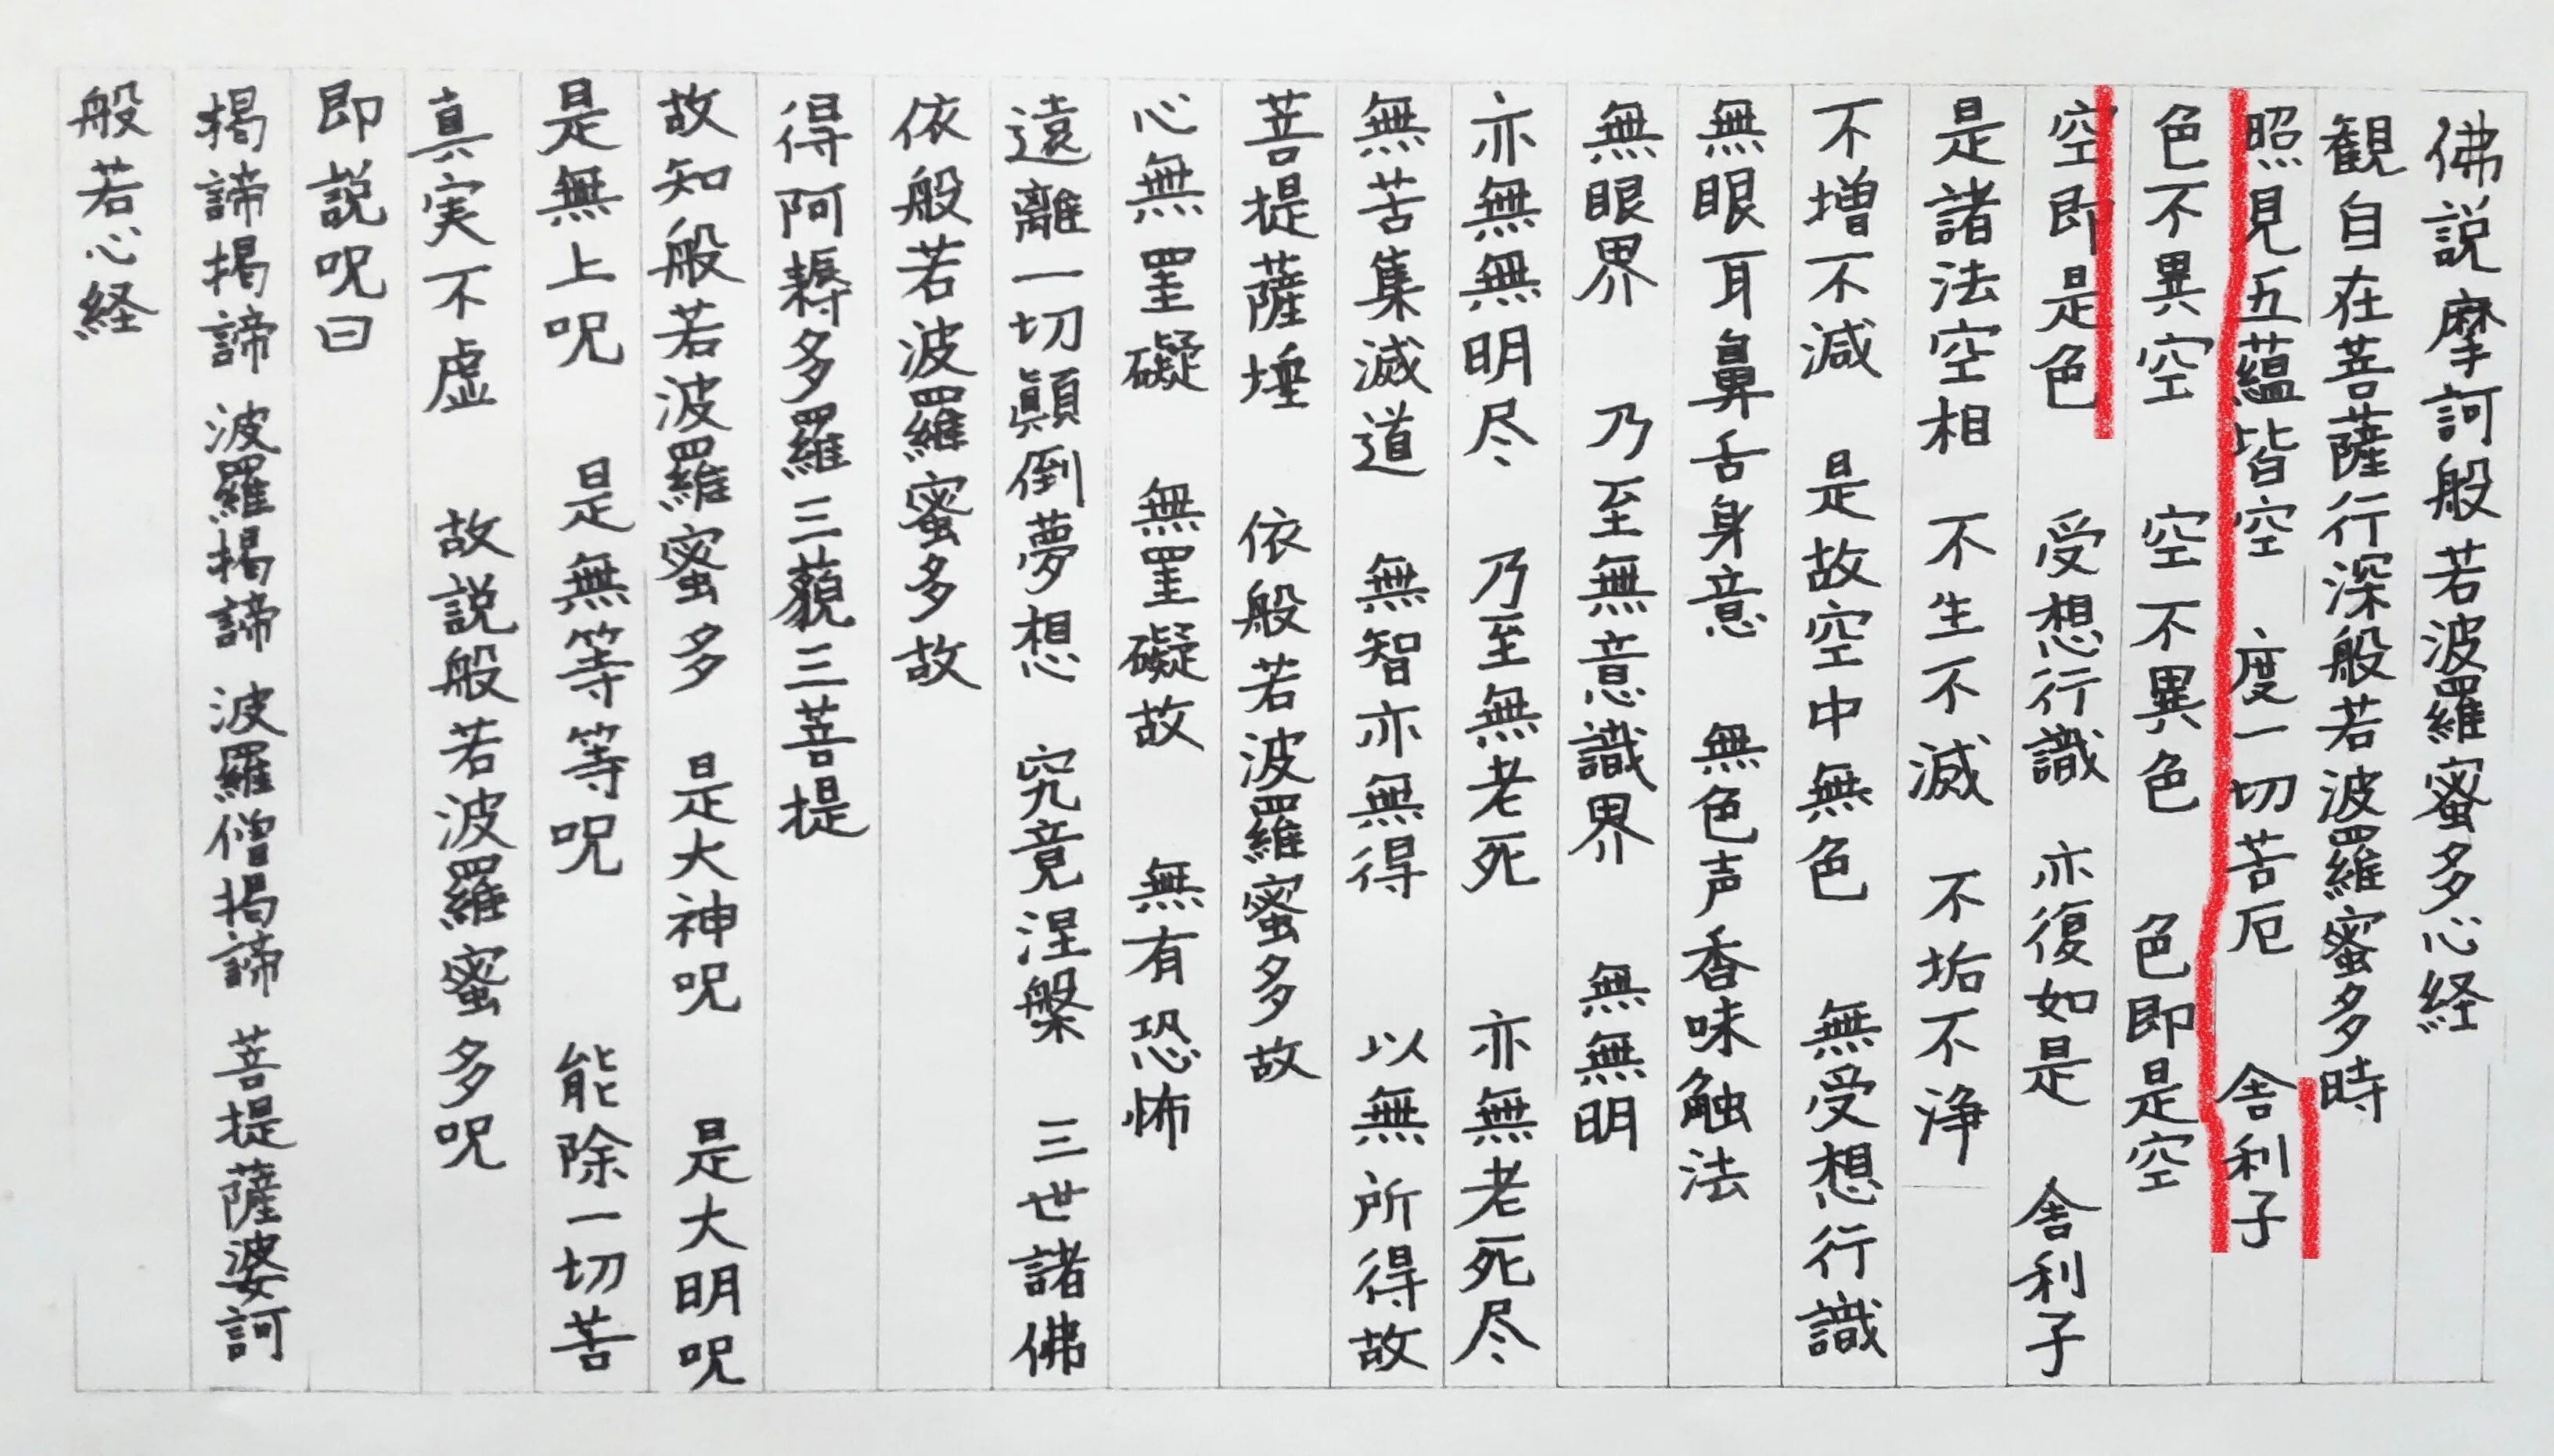 佛説摩訶般若波羅蜜多心経
観自在菩薩行深般若波羅蜜多時
照見五蘊皆空 度一切苦厄 舎利子
色不異空 空不異色 色即是空
空即是色 受想行識 亦復如是 舎利子
是諸法空相 不生不滅 不垢不浄
不増不減 是故空中無色 無受想行識
無眼耳鼻舌身意 無色声香味触法
無眼界 乃至無意識界 無無明
亦無無明尽 乃至無老死 亦無老死尽
無苦集滅道 無智亦無得 以無所得故
菩提薩埵 依般若波羅蜜多故
心無罣礙 無罣礙故 無有恐怖
遠離一切顛倒夢想 究竟涅槃 三世諸佛
依般若波羅蜜多故
得阿耨多羅三藐三菩提
故知般若波羅蜜多 是大神呪 是大明呪
是無上呪 是無等等呪 能除一切苦
真実不虚 故説般若波羅蜜多呪
即説呪曰
掲諦掲諦 波羅掲諦 波羅僧掲諦 菩提薩婆訶
般若心経